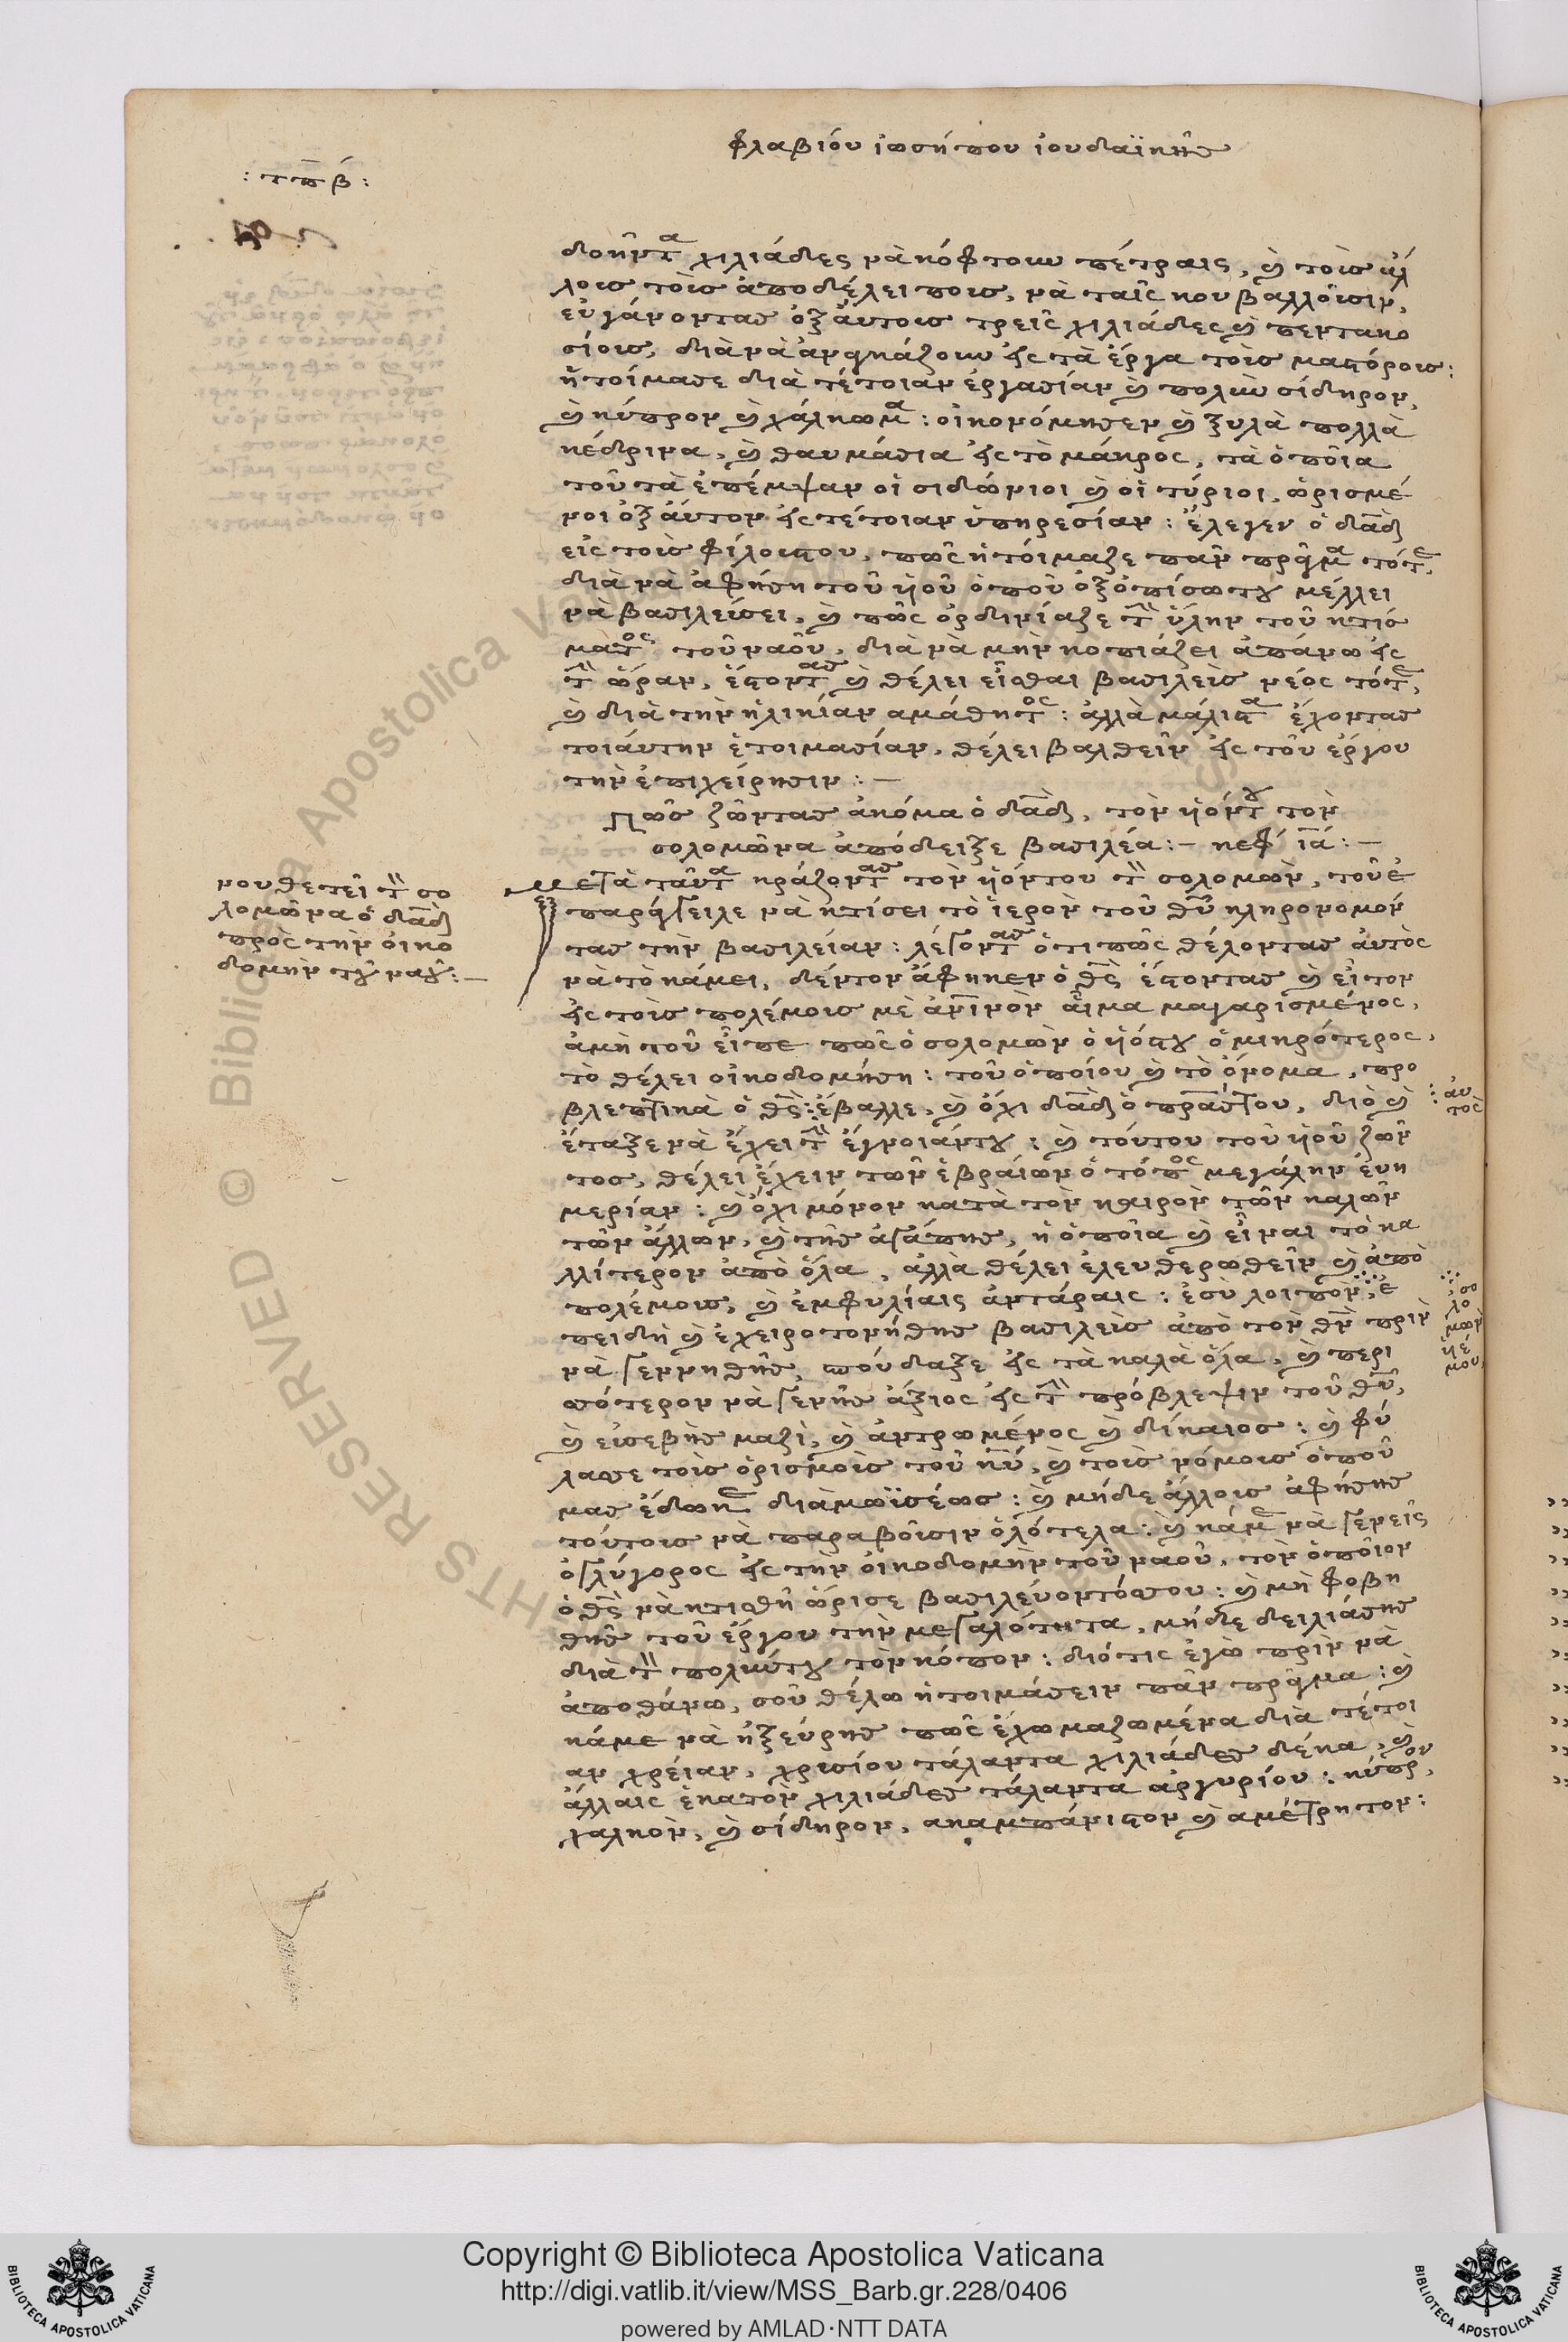 φλαβιόυ ἰωσήπου ἰουδαϊκῆσ
: τπβ :
δοῆντα χιλιάδες νὰ κόφτουν πέτραις, καὶ τοὺσ ἀλ
λουσ τοὺσ ἀποδέλειπουσ, νὰ ταῖς κουβαλλοῦσιν,
εὐγάνοντασ ὀξάυτουσ τρεῖς χιλιάδες καὶ πεντακο
σίουσ, διὰ νὰ ἀναγκάζουν εἰς τὰ ἔργα τοὺσ μαστόρουσ:
ἡτοίμασε διὰ τέτοιαν ἐργασίαν καὶ πολὺν σίδηρον,
καὶ κύπρον καὶ χάλκωμα: οἰκονόμησεν καὶ ξυλὰ πολλὰ
κέδρινα, καὶ θαυμάσια εἰς τὸ μάκρος, τὰ ὁποῖα
τοῦ τὰ ἐπέμψαν οἱ σιδώνιοι καὶ οἱ τύριοι, ὡρισμέ
νοι ὀξάυτον εἰς τέτοιαν ὑπηρεσίαν: ἔλεγεν ὁ δαδ
εἰς τοὺσ φίλουστου, πῶς ἡτόιμαζε πᾶν πρᾶγμα τότε,
διὰ νὰ ἀφήση τοῦ ὑιοῦ ὁποῦ ὀξοπίσωτου μέλλει
νὰ βασιλεύσει, καὶ πῶς ὀρδινίαζε τὴν ὕλην τοῦ κτισ
μάτος τοῦ ναοῦ, διὰ νὰ μὴν κοπιάζει ἀπάνω εἰς
τὴν ὥραν, ἔστοντασ καὶ θέλει εἶσθαι βασιλεὺσ νέος τότε,
καὶ διὰ τὴν ἡλικίαν αμάθητος: ἀλλὰ μάλιστα ἔχοντασ
τοιάυτην ἑτοιμασίαν, θέλει βαλθεῖν εἰς τοῦ ἔργου
τὴν ἐπιχείρησιν:—
Πῶσ ζῶντασ ἀκόμα ὁ δαδ, τὸν ὑιόντου τὸν
σολομῶνα ἀπόδειξε βασιλέα:— κεφ ια:—
Μετὰ ταῦτα κράζοντασ τὸν ὑιόντου τὸν σολομὼν, τοῦ ἐ
παράγγειλε νὰ κτίσει τὸ ἱερὸν τοῦ θῦ κληρονομόν
τασ τὴν βασιλείαν: λέγοντασ ὅτι πῶς θέλοντασ ἀυτὸς
νὰ τὸ κάμει, δέντον ἄφηκεν ὁ θς ἔστοντασ καὶ εἶτον
εἰς τοὺσ πολέμουσ μὲ ἀνινὸν αἷμα μαγαρισμένος,
ἀμὴ τοῦ εἶπε πῶς ὁ σολομὼν ὁ ὑιόστου ὁ μικρότερος,
τὸ θέλει οἰκοδομήση: τοῦ ὁποίου καὶ τὸ ὄνομα, προ
βλεπτικὰ ὁ θς: ἔβαλλε, καὶ ὄχι δαδ ὁ πραὐτου, διὸ καὶ
ἔταξε νὰ ἔχει τὴν ἔγνοιάντου: καὶ τόυτου τοῦ ὑιοῦ ζῶν
τοσ, θέλει ἔχειν τῶν ἑβραίων ὁ τόπος μεγάλην ἐυη
μερίαν: καὶ ὄχι μόνον κατὰ τὸν καιρὸν τῶν καλῶν
τῶν ἄλλων, καὶ τῆσ ἀγάπησ, ἡ ὁποῖα καὶ εἶναι τὸ κα
λλίτερον ἀπὸ ὅλα, ἀλλὰ θέλει ἐλευθερωθεῖν καὶ ἀπὸ
πολέμουσ, καὶ ἐμφυλίαις ἀντάραις: ἐσὺ λοιπὸν, ἐ
πειδὴ καὶ ἐχειροτονήθησ βασιλεὺσ ἀπὸ τὸν θν πρὶν
νὰ γεννηθῆσ, σπόυδαξε εἰς τὰ καλὰ ὅλα, καὶ περι
σσότερον νὰ γενῆσ ἄξιος εἰς τὴν πρόβλεψιν τοῦ θῦ,
καὶ εὐσεβὴσ μαζὶ, καὶ ἀντρωμένος καὶ δίκαιοσ: καὶ φύ
λασσε τοὺσ ὁρισμοὺσ τοῦ κῦ, καὶ τοὺσ νόμουσ ὁποῦ
μασ ἔδωκε διὰ μωϋσέωσ: καὶ μήδε ἄλλουσ ἀφήσησ
τόυτουσ νὰ παραβοῦσιν ὁλότελα: καὶ κάμε νὰ γενεῖς
ὀγλύγορος εἰς τὴν οἰκοδομὴν τοῦ ναοῦ, τὸν ὁποῖον
ὁ θς νὰ κτισθῆ ὥρισε βασιλέυοντόσσου: καὶ μὴ φοβη
θῆσ τοῦ ἔργου τὴν μεγαλότητα, μήδε δειλιάσησ
διὰ τὸν πολιύντου τὸν κόπον: διότις ἐγὼ πρὶν νὰ
ἀποθάνω, σοῦ θέλω ἡτοιμάσειν πᾶν πρᾶγμα: καὶ
κάμε νὰ ἠξέυρησ πῶς ἔχω μαζωμένα διὰ τέτοι
αν χρέιαν, χρυσίου τάλαντα χιλιάδεσ δέκα, καὶ
ἄλλαις ἑκατὸν χιλιάδεσ τάλαντα ἀργυρίου: κύπρον,
χαλκὸν, καὶ σίδηρον, ακαμπάνιστον καὶ αμέτρητον:
νουθετεῖ τὸν σο
λομῶνα ὁ δαδ
πρὸς τὴν ὀικο
δομὴν τοῦ ναοῦ:—
: ἀυ
τοὺ
σο
λο
μὼν
ὑιέ
μου,
Copyright © Biblioteca Apostolica Vaticana
http://digi.vatlib.it/view/MSS_Barb.gr.228/0406
powered by AMLAD·NTT DATA
BIBLIOTECA APOSTOLICA VATICANA
BIBLIOTECA APOSTOLICA VATICANA